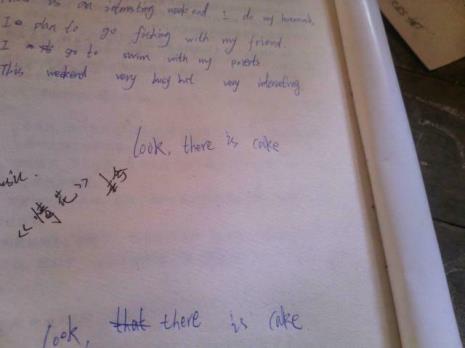 is an interesting weekend I do my homework,
I plan to go fishing with my friend.
I go to swim with my parents
This weekend very busy but very interesting.
look, there is cake
music.
look, that there is cake